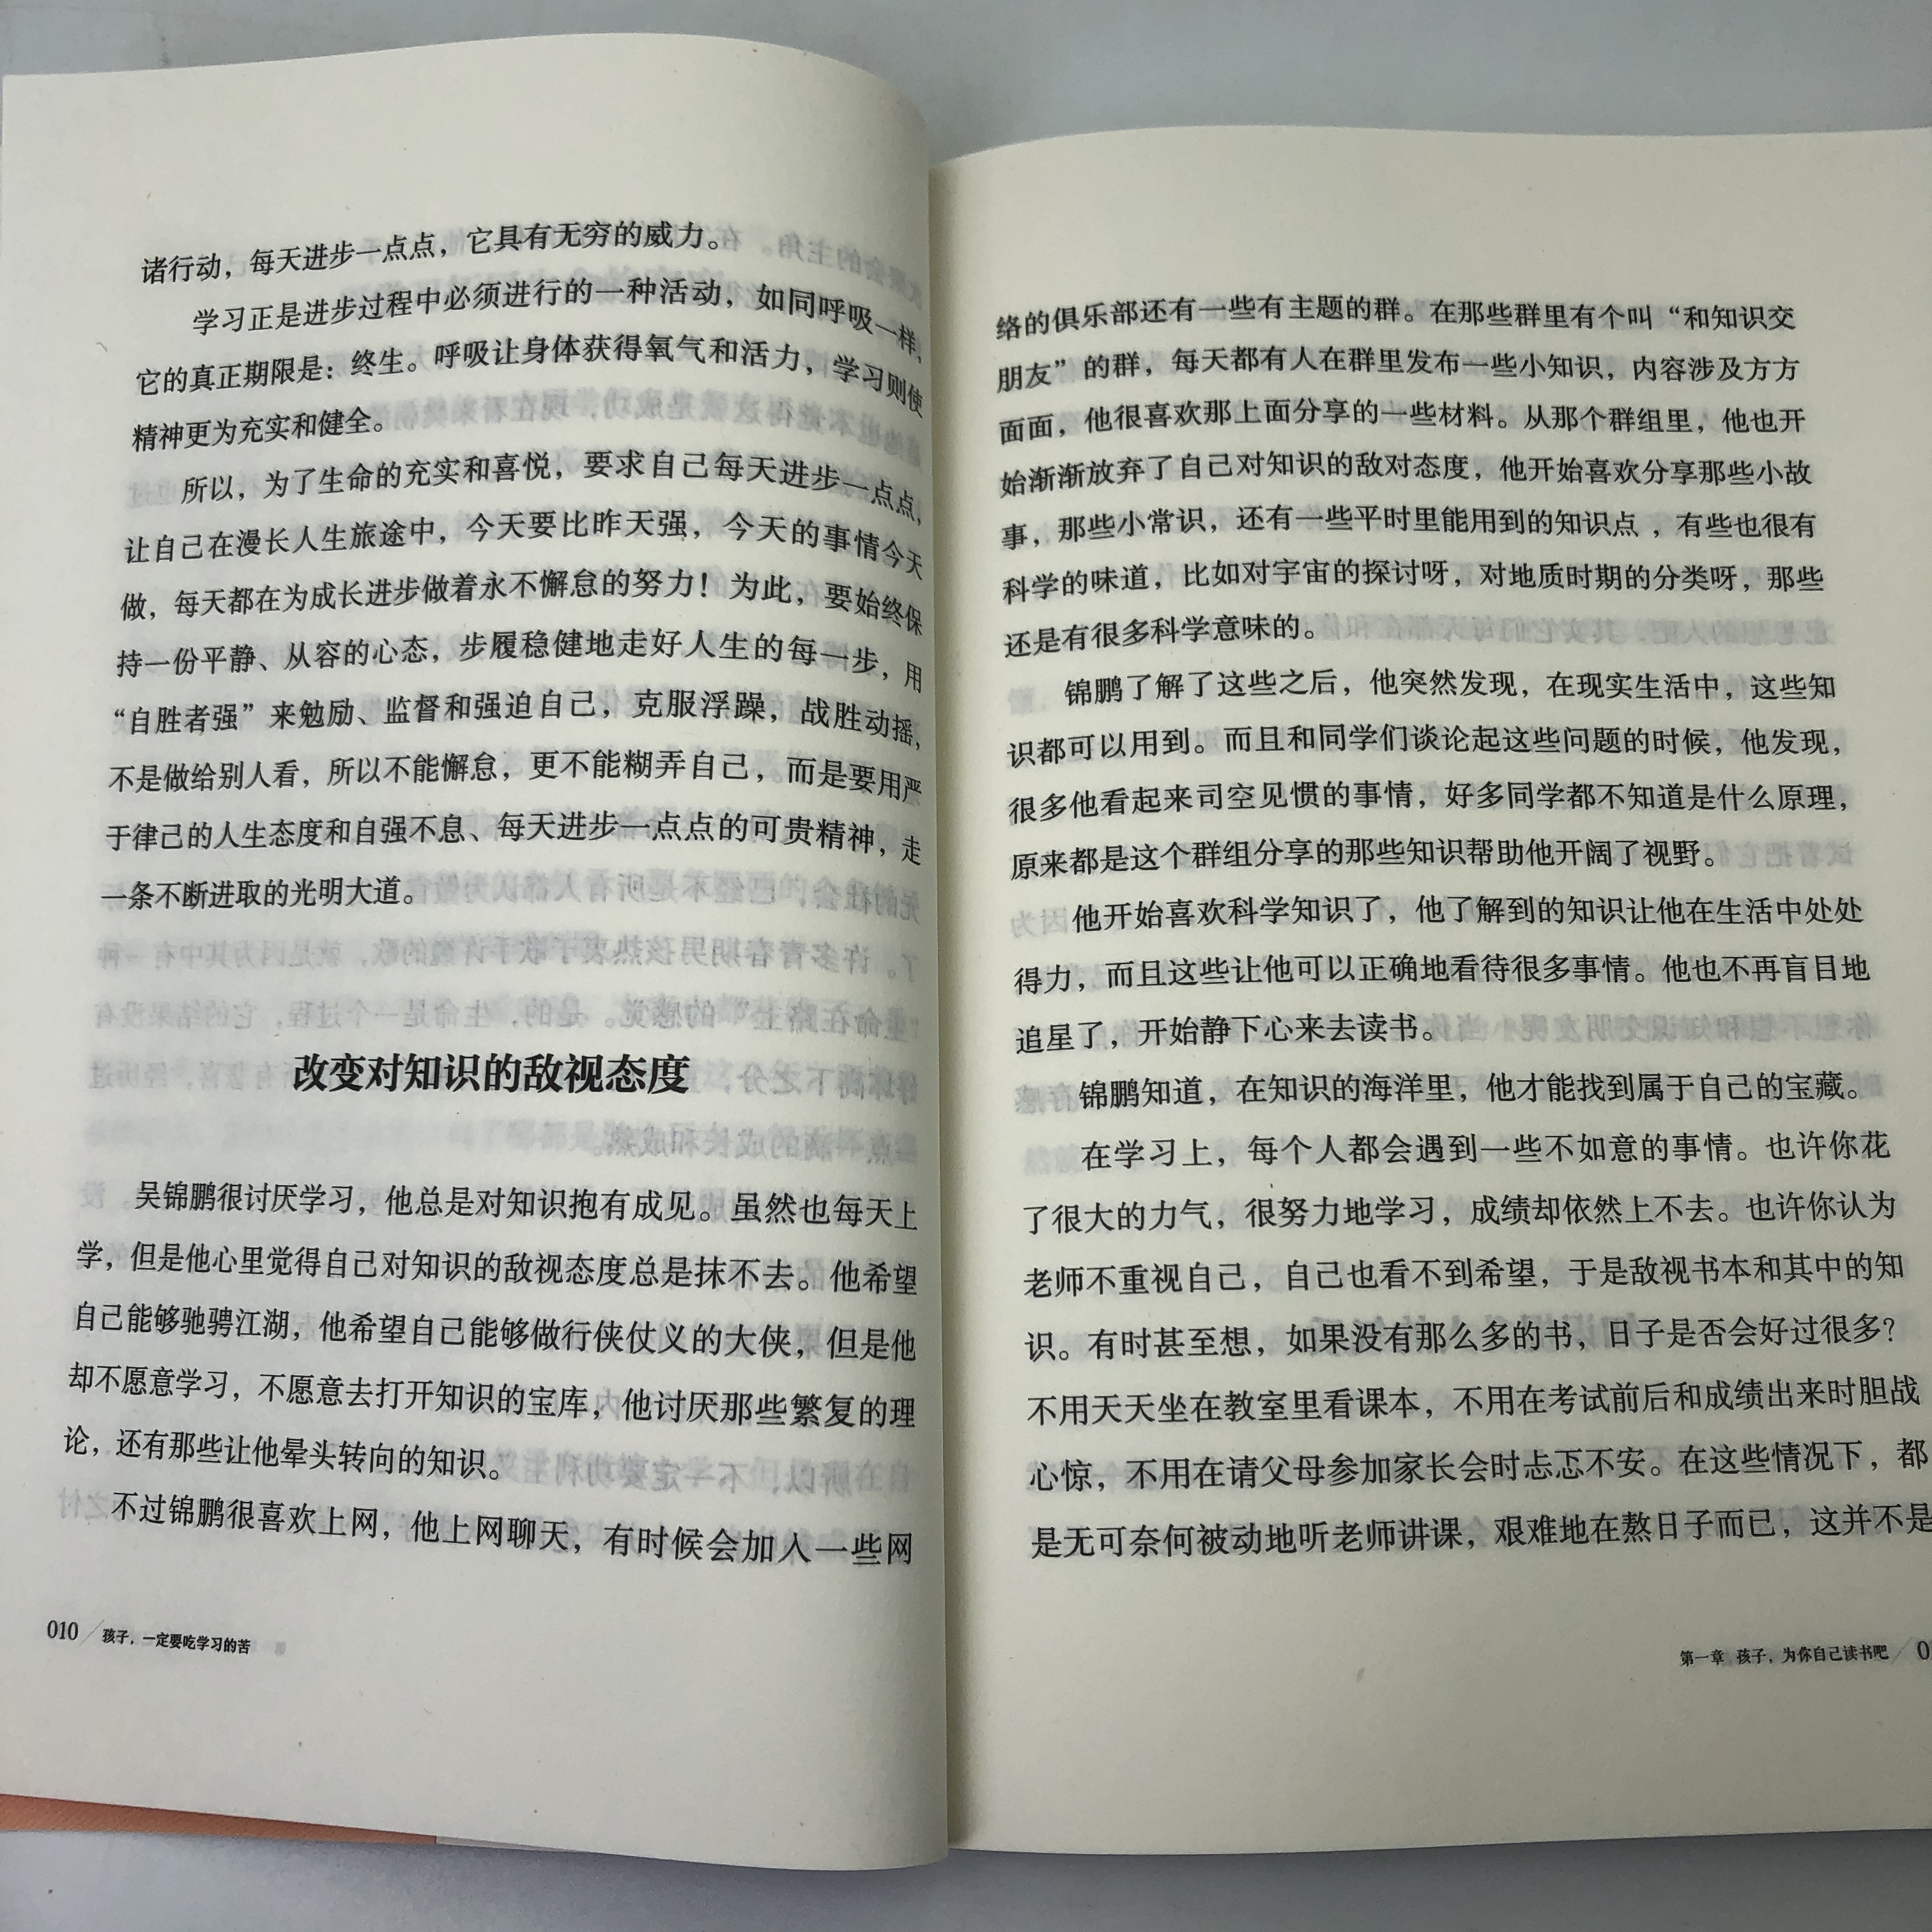 诸行动，每天进步一点点，它具有无穷的威力。
学习正是进步过程中必须进行的一种活动，如同呼吸一样，
它的真正期限是：终生。呼吸让身体获得氧气和活力，学习则使
精神更为充实和健全。
所以，为了生命的充实和喜悦，要求自己每天进步一点点，
让自己在漫长人生旅途中，今天要比昨天强，今天的事情今天
做，每天都在为成长进步做着永不懈怠的努力！为此，要始终保
持一份平静、从容的心态，步履稳健地走好人生的每一步，用
“自胜者强”来勉励、监督和强迫自己，克服浮躁，战胜动摇，
不是做给别人看，所以不能懈怠，更不能糊弄自己，而是要用严
于律己的人生态度和自强不息、每天进步一点点的可贵精神，走
一条不断进取的光明大道。
改变对知识的敌视态度
吴锦鹏很讨厌学习，他总是对知识抱有成见。虽然也每天上
学，但是他心里觉得自己对知识的敌视态度总是抹不去。他希望
自己能够驰骋江湖，他希望自己能够做行侠仗义的大侠，但是他
却不愿意学习，不愿意去打开知识的宝库，他讨厌那些繁复的理
论，还有那些让他晕头转向的知识。
不过锦鹏很喜欢上网，他上网聊天，有时候会加入一些网
010 / 孩子，一定要吃学习的苦
络的俱乐部还有一些有主题的群。在那些群里有个叫“和知识交
朋友”的群，每天都有人在群里发布一些小知识，内容涉及方方
面面，他很喜欢那上面分享的一些材料。从那个群组里，他也开
始渐渐放弃了自己对知识的敌对态度，他开始喜欢分享那些小故
事，那些小常识，还有一些平时里能用到的知识点，有些也很有
科学的味道，比如对宇宙的探讨呀，对地质时期的分类呀，那些
还是有很多科学意味的。
锦鹏了解了这些之后，他突然发现，在现实生活中，这些知
识都可以用到。而且和同学们谈论起这些问题的时候，他发现，
很多他看起来司空见惯的事情，好多同学都不知道是什么原理，
原来都是这个群组分享的那些知识帮助他开阔了视野。
他开始喜欢科学知识了，他了解到的知识让他在生活中处处
得力，而且这些让他可以正确地看待很多事情。他也不再盲目地
追星了，开始静下心来去读书。
锦鹏知道，在知识的海洋里，他才能找到属于自己的宝藏。
在学习上，每个人都会遇到一些不如意的事情。也许你花
了很大的力气，很努力地学习，成绩却依然上不去。也许你认为
老师不重视自己，自己也看不到希望，于是敌视书本和其中的知
识。有时甚至想，如果没有那么多的书，日子是否会好过很多？
不用天天坐在教室里看课本，不用在考试前后和成绩出来时胆战
心惊，不用在请父母参加家长会时忐忑不安。在这些情况下，都
是无可奈何被动地听老师讲课，艰难地在熬日子而已，这并不是
第一章 孩子，为你自己读书吧 / 0